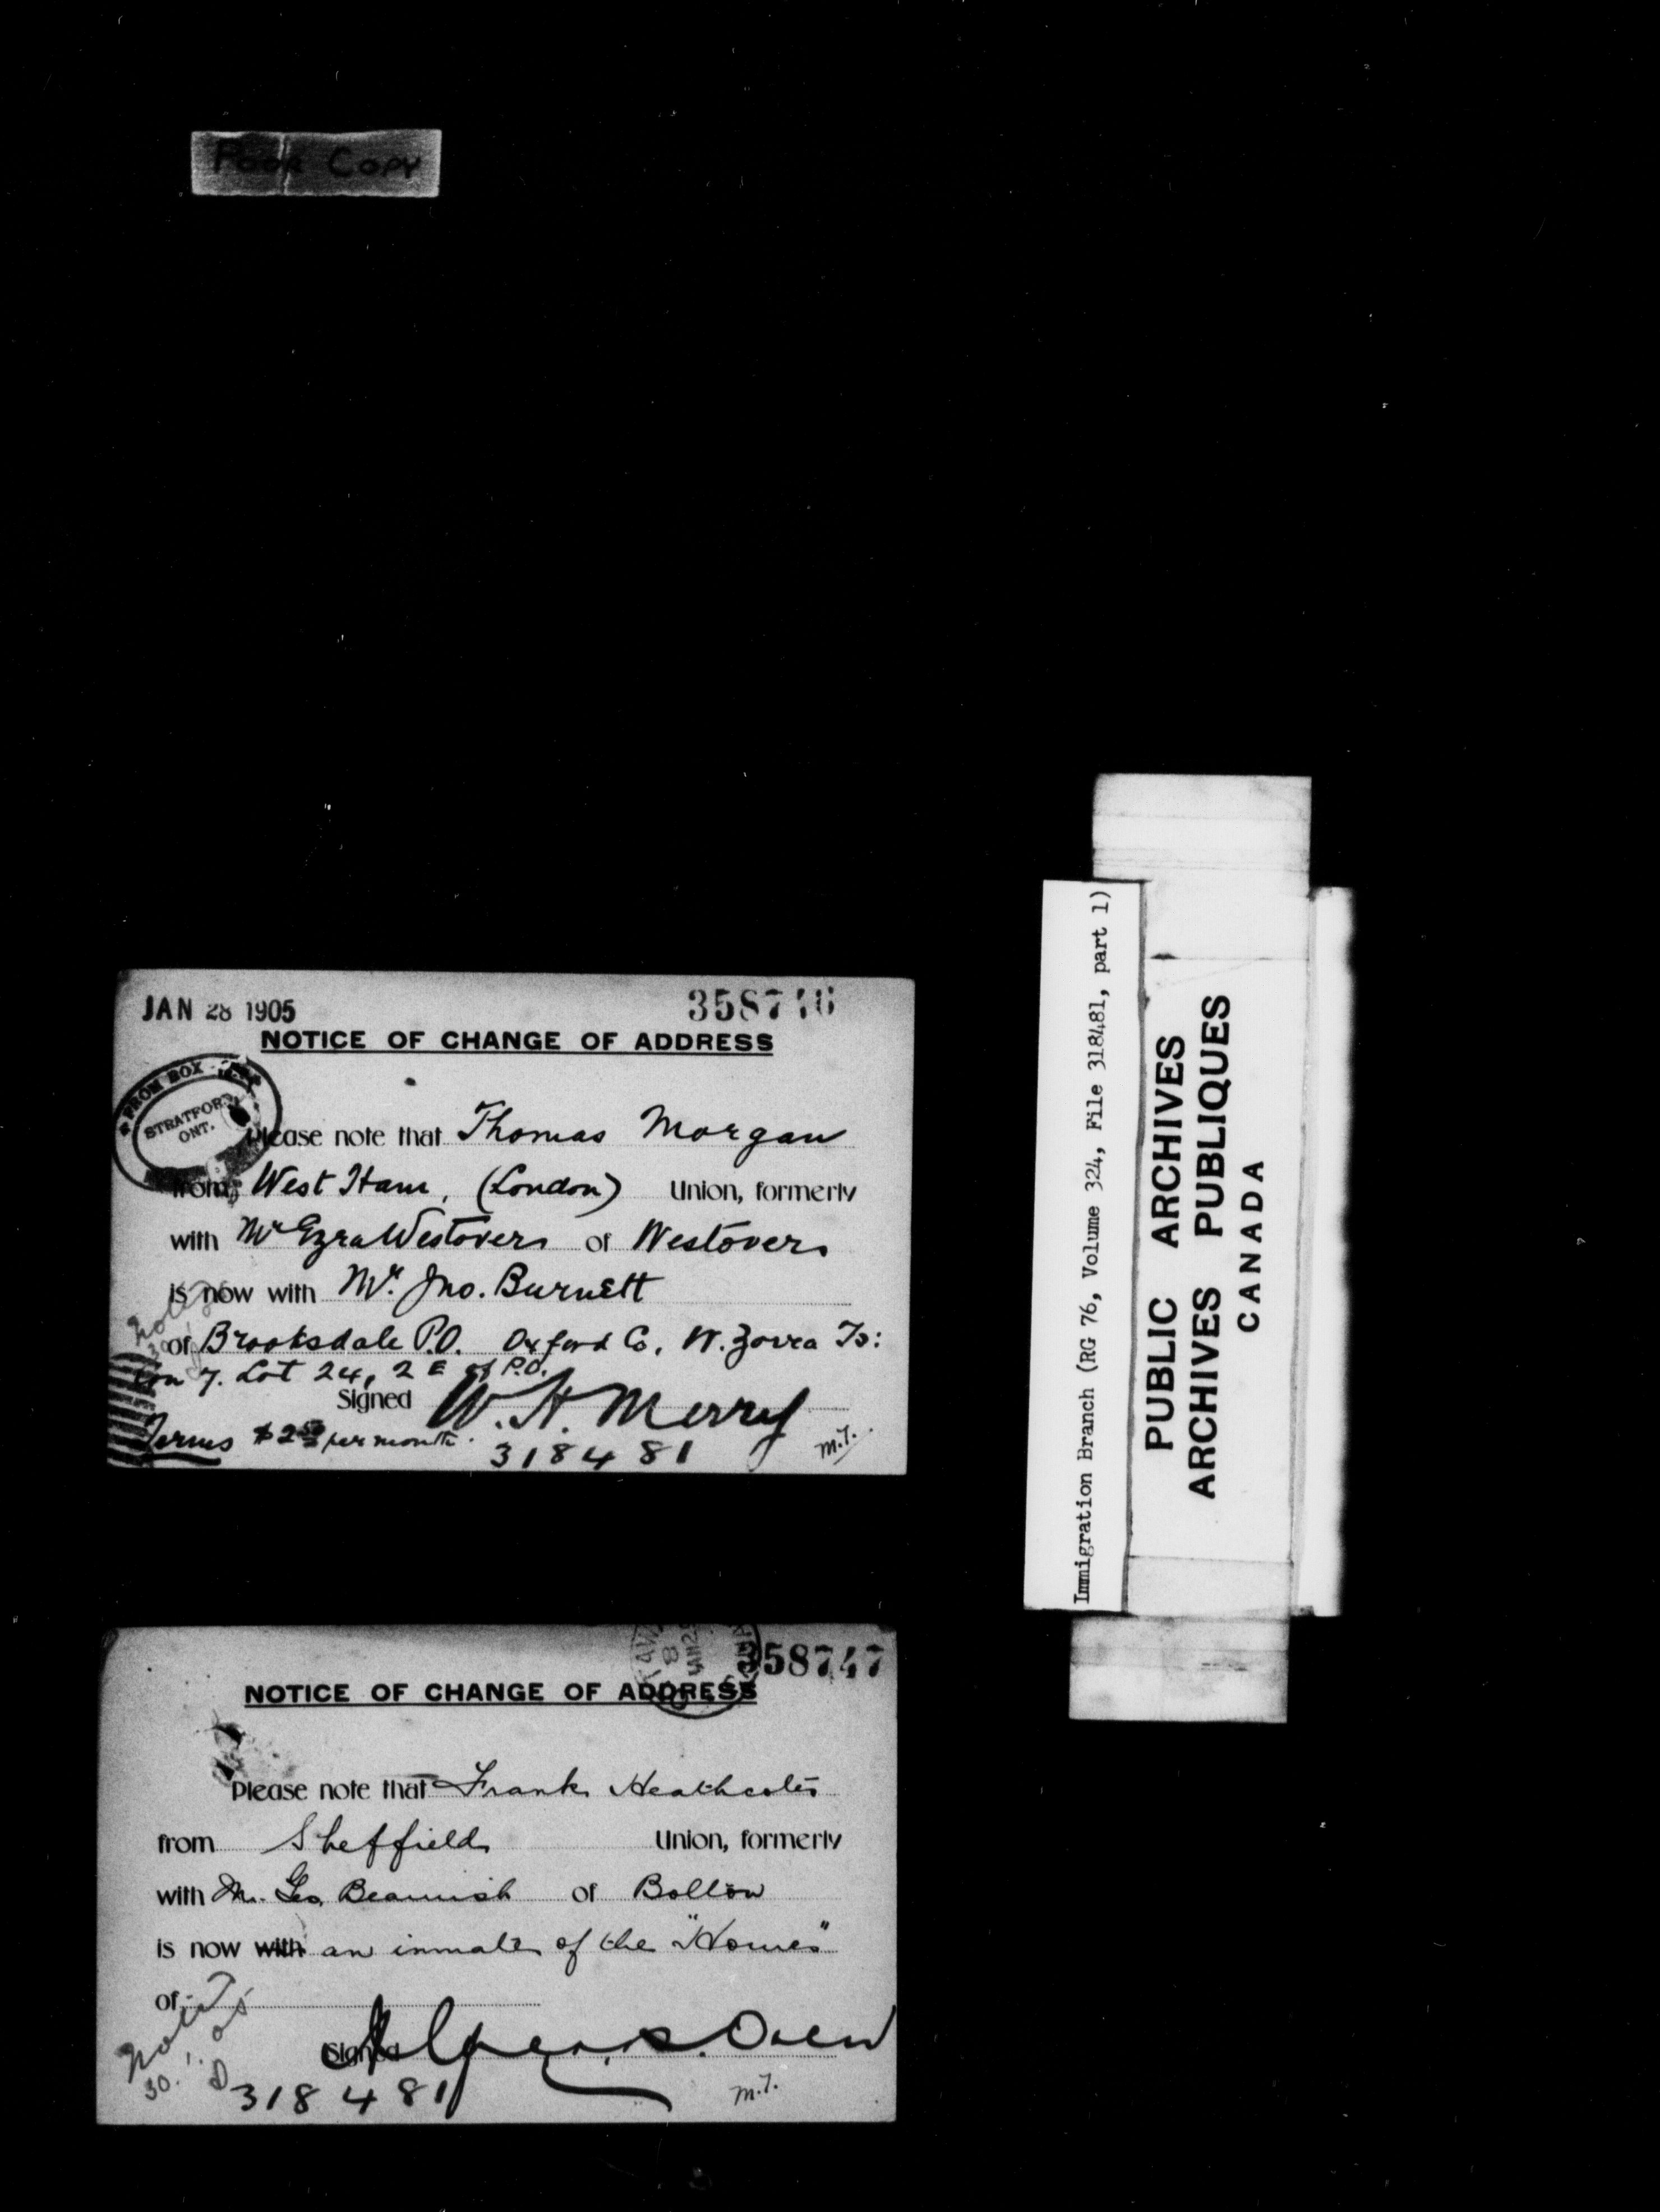 Poor Copy
JAN 28 1905
358746
NOTICE OF CHANGE OF ADDRESS
FROM BOX
STRATFORD
ONT.
Please note that Thomas Morgan
from West Ham, (London) Union, formerly
with Mr Ezra Westover of Westover
is now with Mr. Jno. Burnett
of Brooksdale P.O. Oxford Co. W. Zorra Tp:
Con 7. Lot 24, 2 E of P.O.
Signed W. H. Merry
Terms $2.50 per month.
318481
M.T.
Noted
358747
NOTICE OF CHANGE OF ADDRESS
Please note that Frank Heathcote
from Sheffield Union, formerly
with Mr. Geo. Beamish of Bolton
is now with an inmate of the "Homes"
of
Signed Owen
Noted
30.1.05
318481
M.T.
Immigration Branch (RG 76, Volume 324, File 318481, part 1)
PUBLIC ARCHIVES
ARCHIVES PUBLIQUES
CANADA